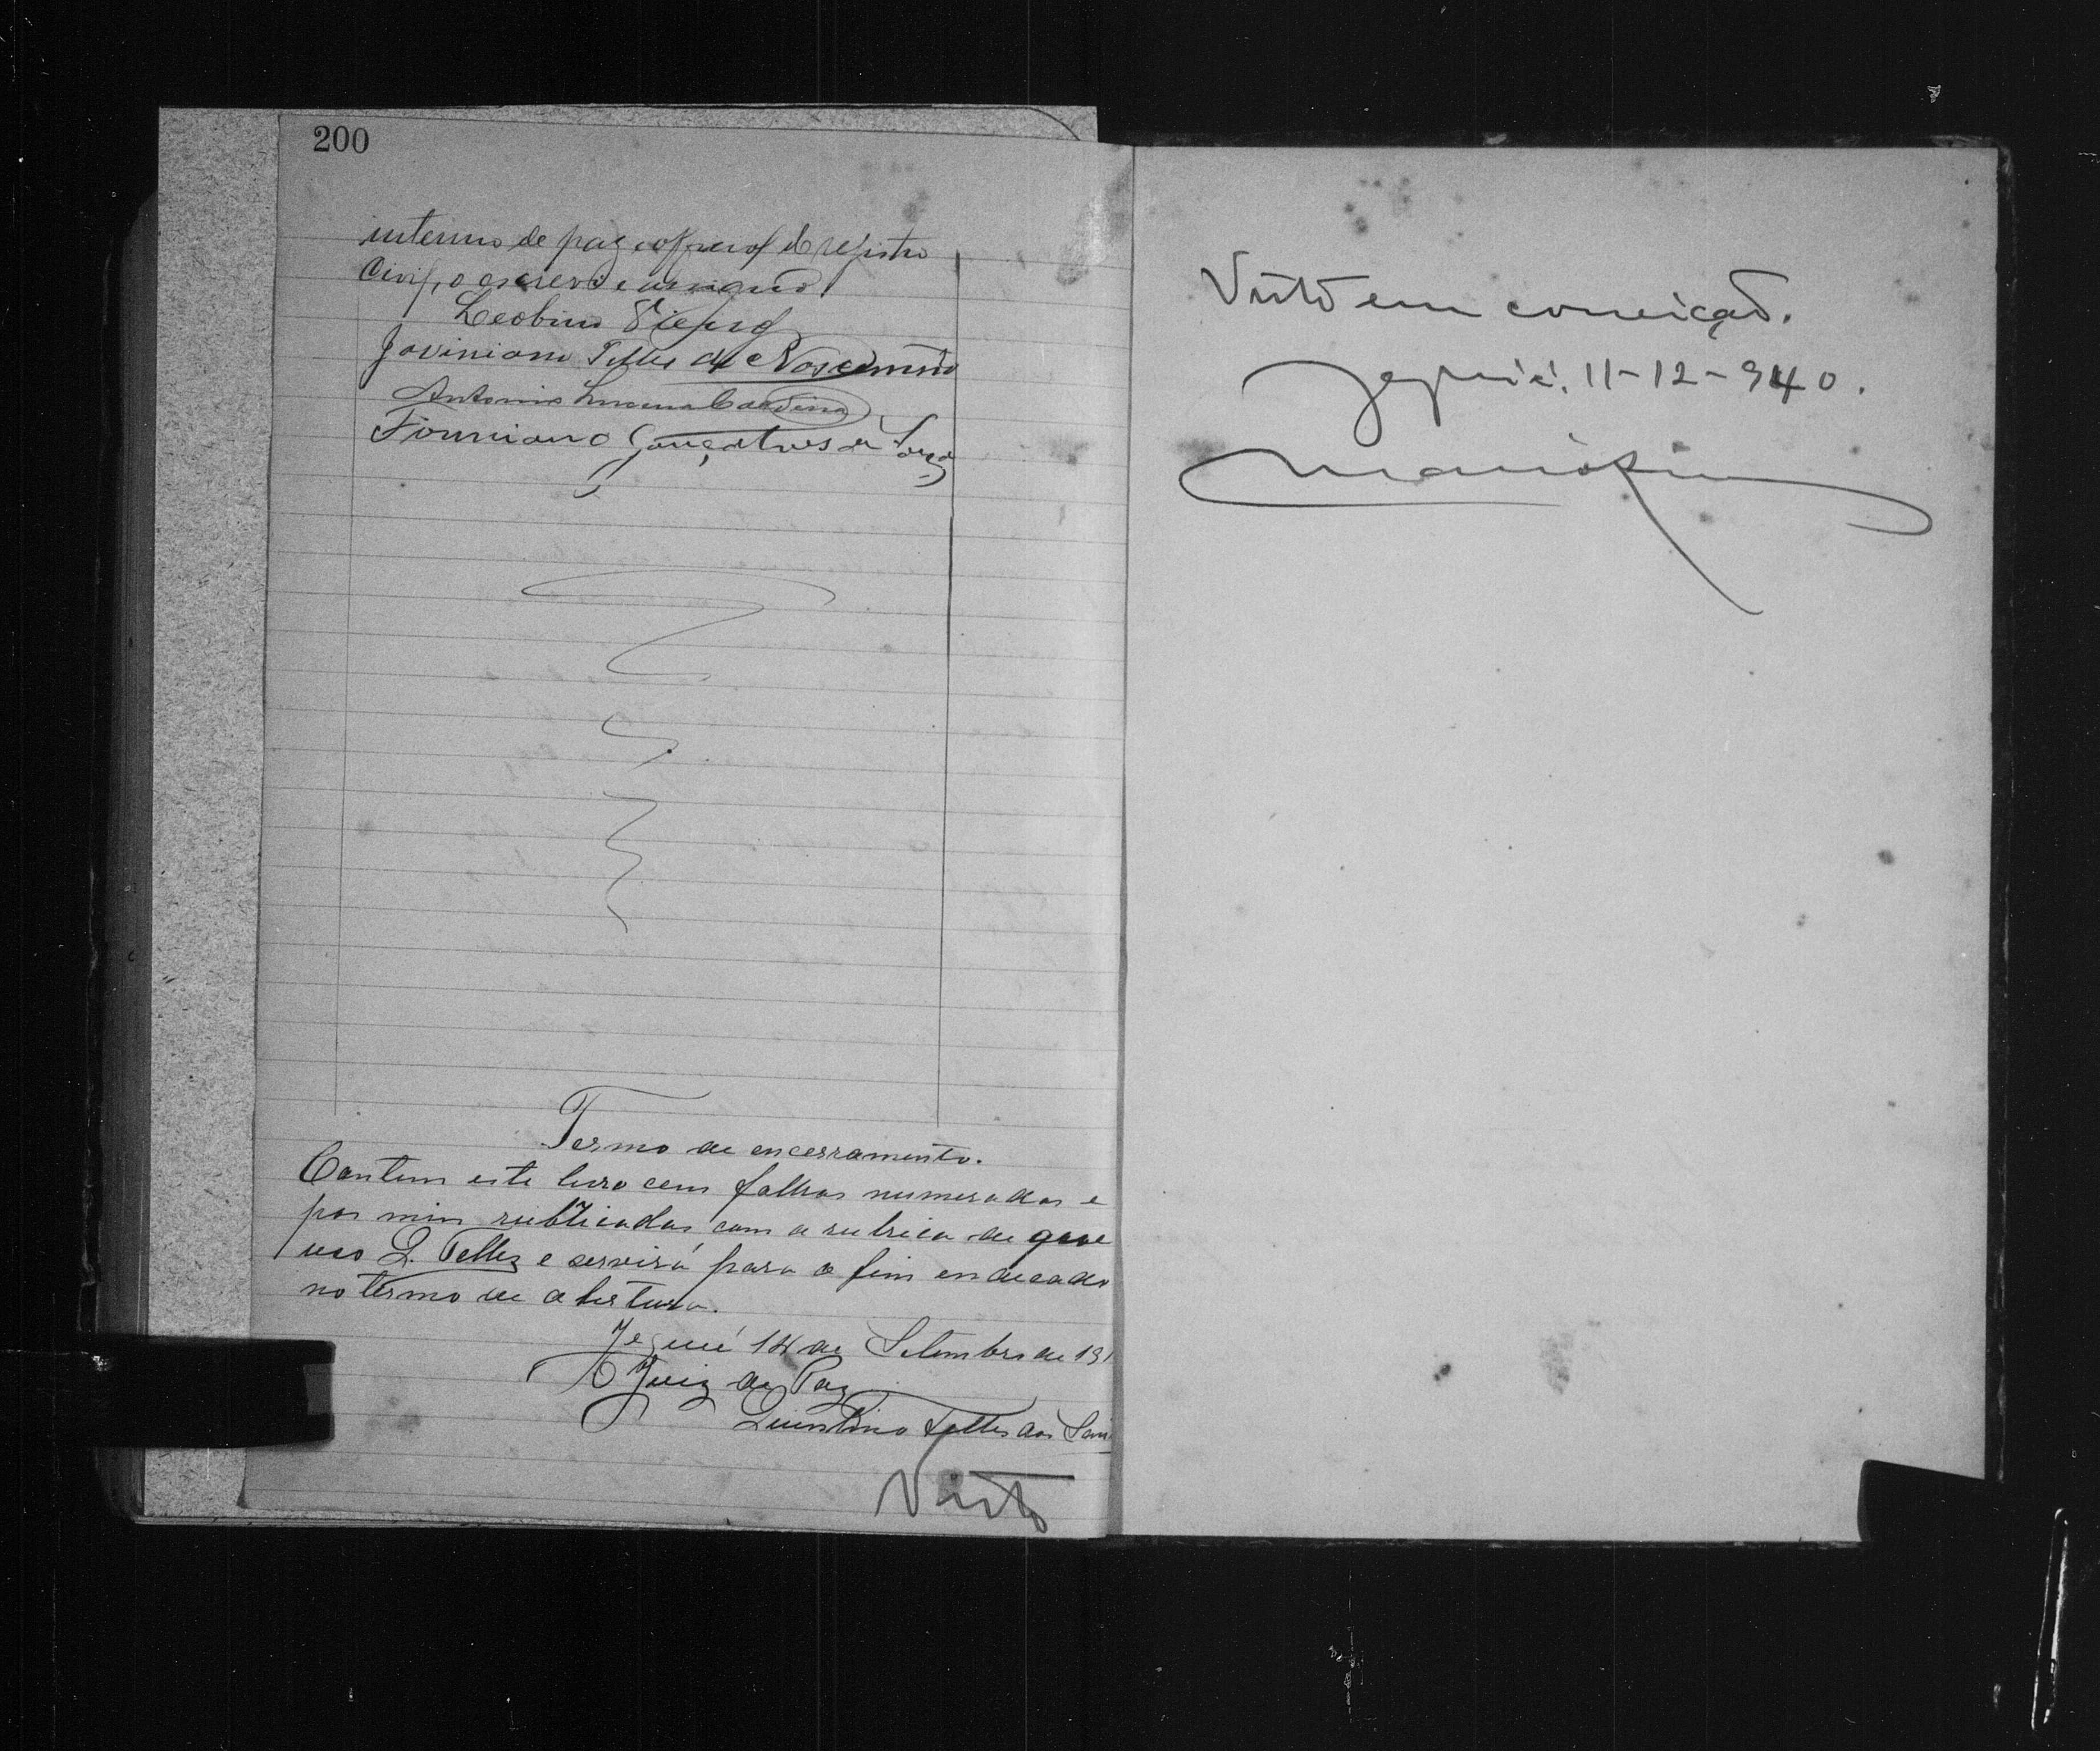 200
interino de paz e official do registro
Civil, o escrevi e assigno.
Leobino
Joviniano Telles do Nascimento
Antonio Lucena
Firmiano Gonçalves de Souza
Termo de encerramento.
Contem este livro cem folhas numeradas e
por mim rubricadas com a rubrica de que
uso Q. Telles e servirá para o fim endecado
no termo de abertura.
Jequié 14 de Setembro de 191
O Juiz de Paz
Quintino Telles dos San
Visto
Visto em correição.
Jequié, 11-12-940.